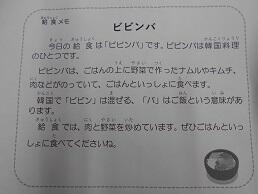 給食メモ
ビビンバ
今日の給食は「ビビンバ」です。ビビンバは韓国料理
のひとつです。
ビビンバは、ごはんの上に野菜で作ったナムルやキムチ、
肉などがのっていて、ごはんといっしょに食べます。
韓国で「ビビン」は混ぜる、「バ」はご飯という意味があ
ります。
給食では、肉と野菜を炒めています。ぜひごはんといっ
しょに食べてくださいね。